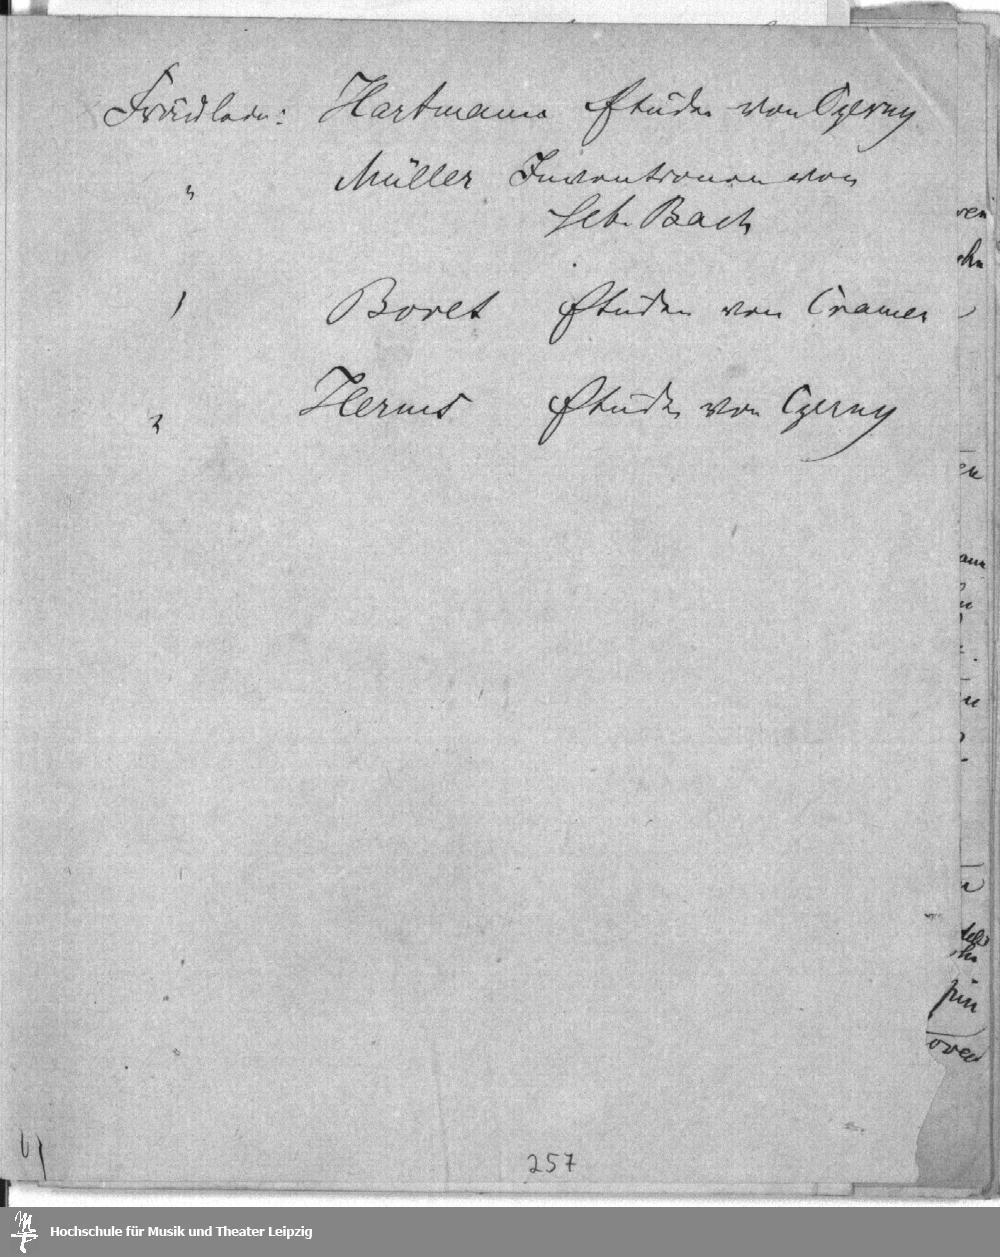 Fräulein: Hartmann Etüden von Czerny
" Müller Inventionen von
Seb. Bach
" Boret Etüden von Cramer
" Herms Etüden von Czerny
257
Hochschule für Musik und Theater Leipzig